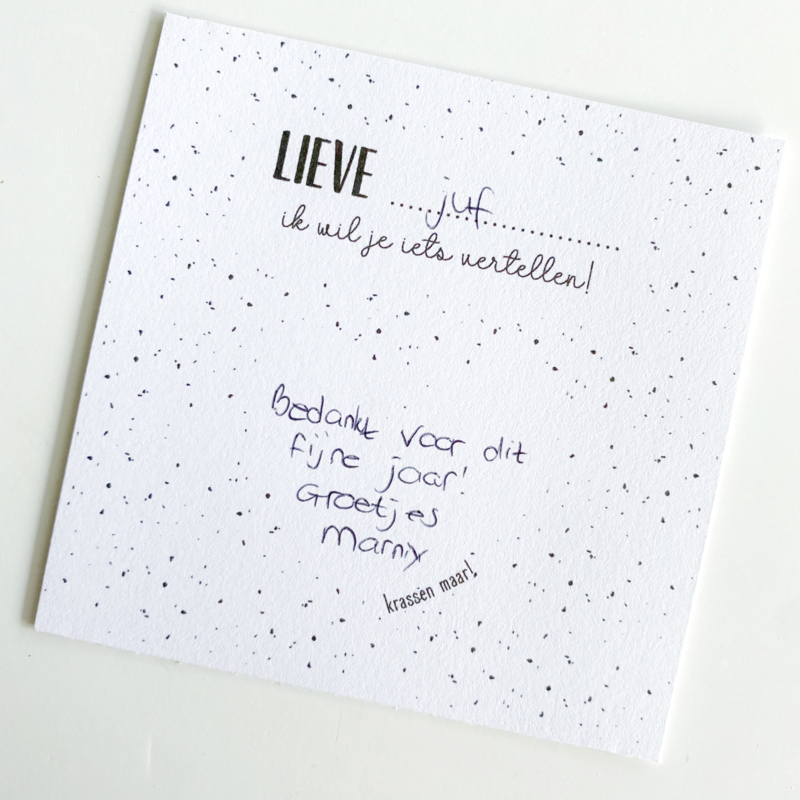 LIEVE ....juf................
ik wil je iets vertellen!
Bedankt voor dit
fijne jaar!
Groetjes
Marnix
krassen maar!